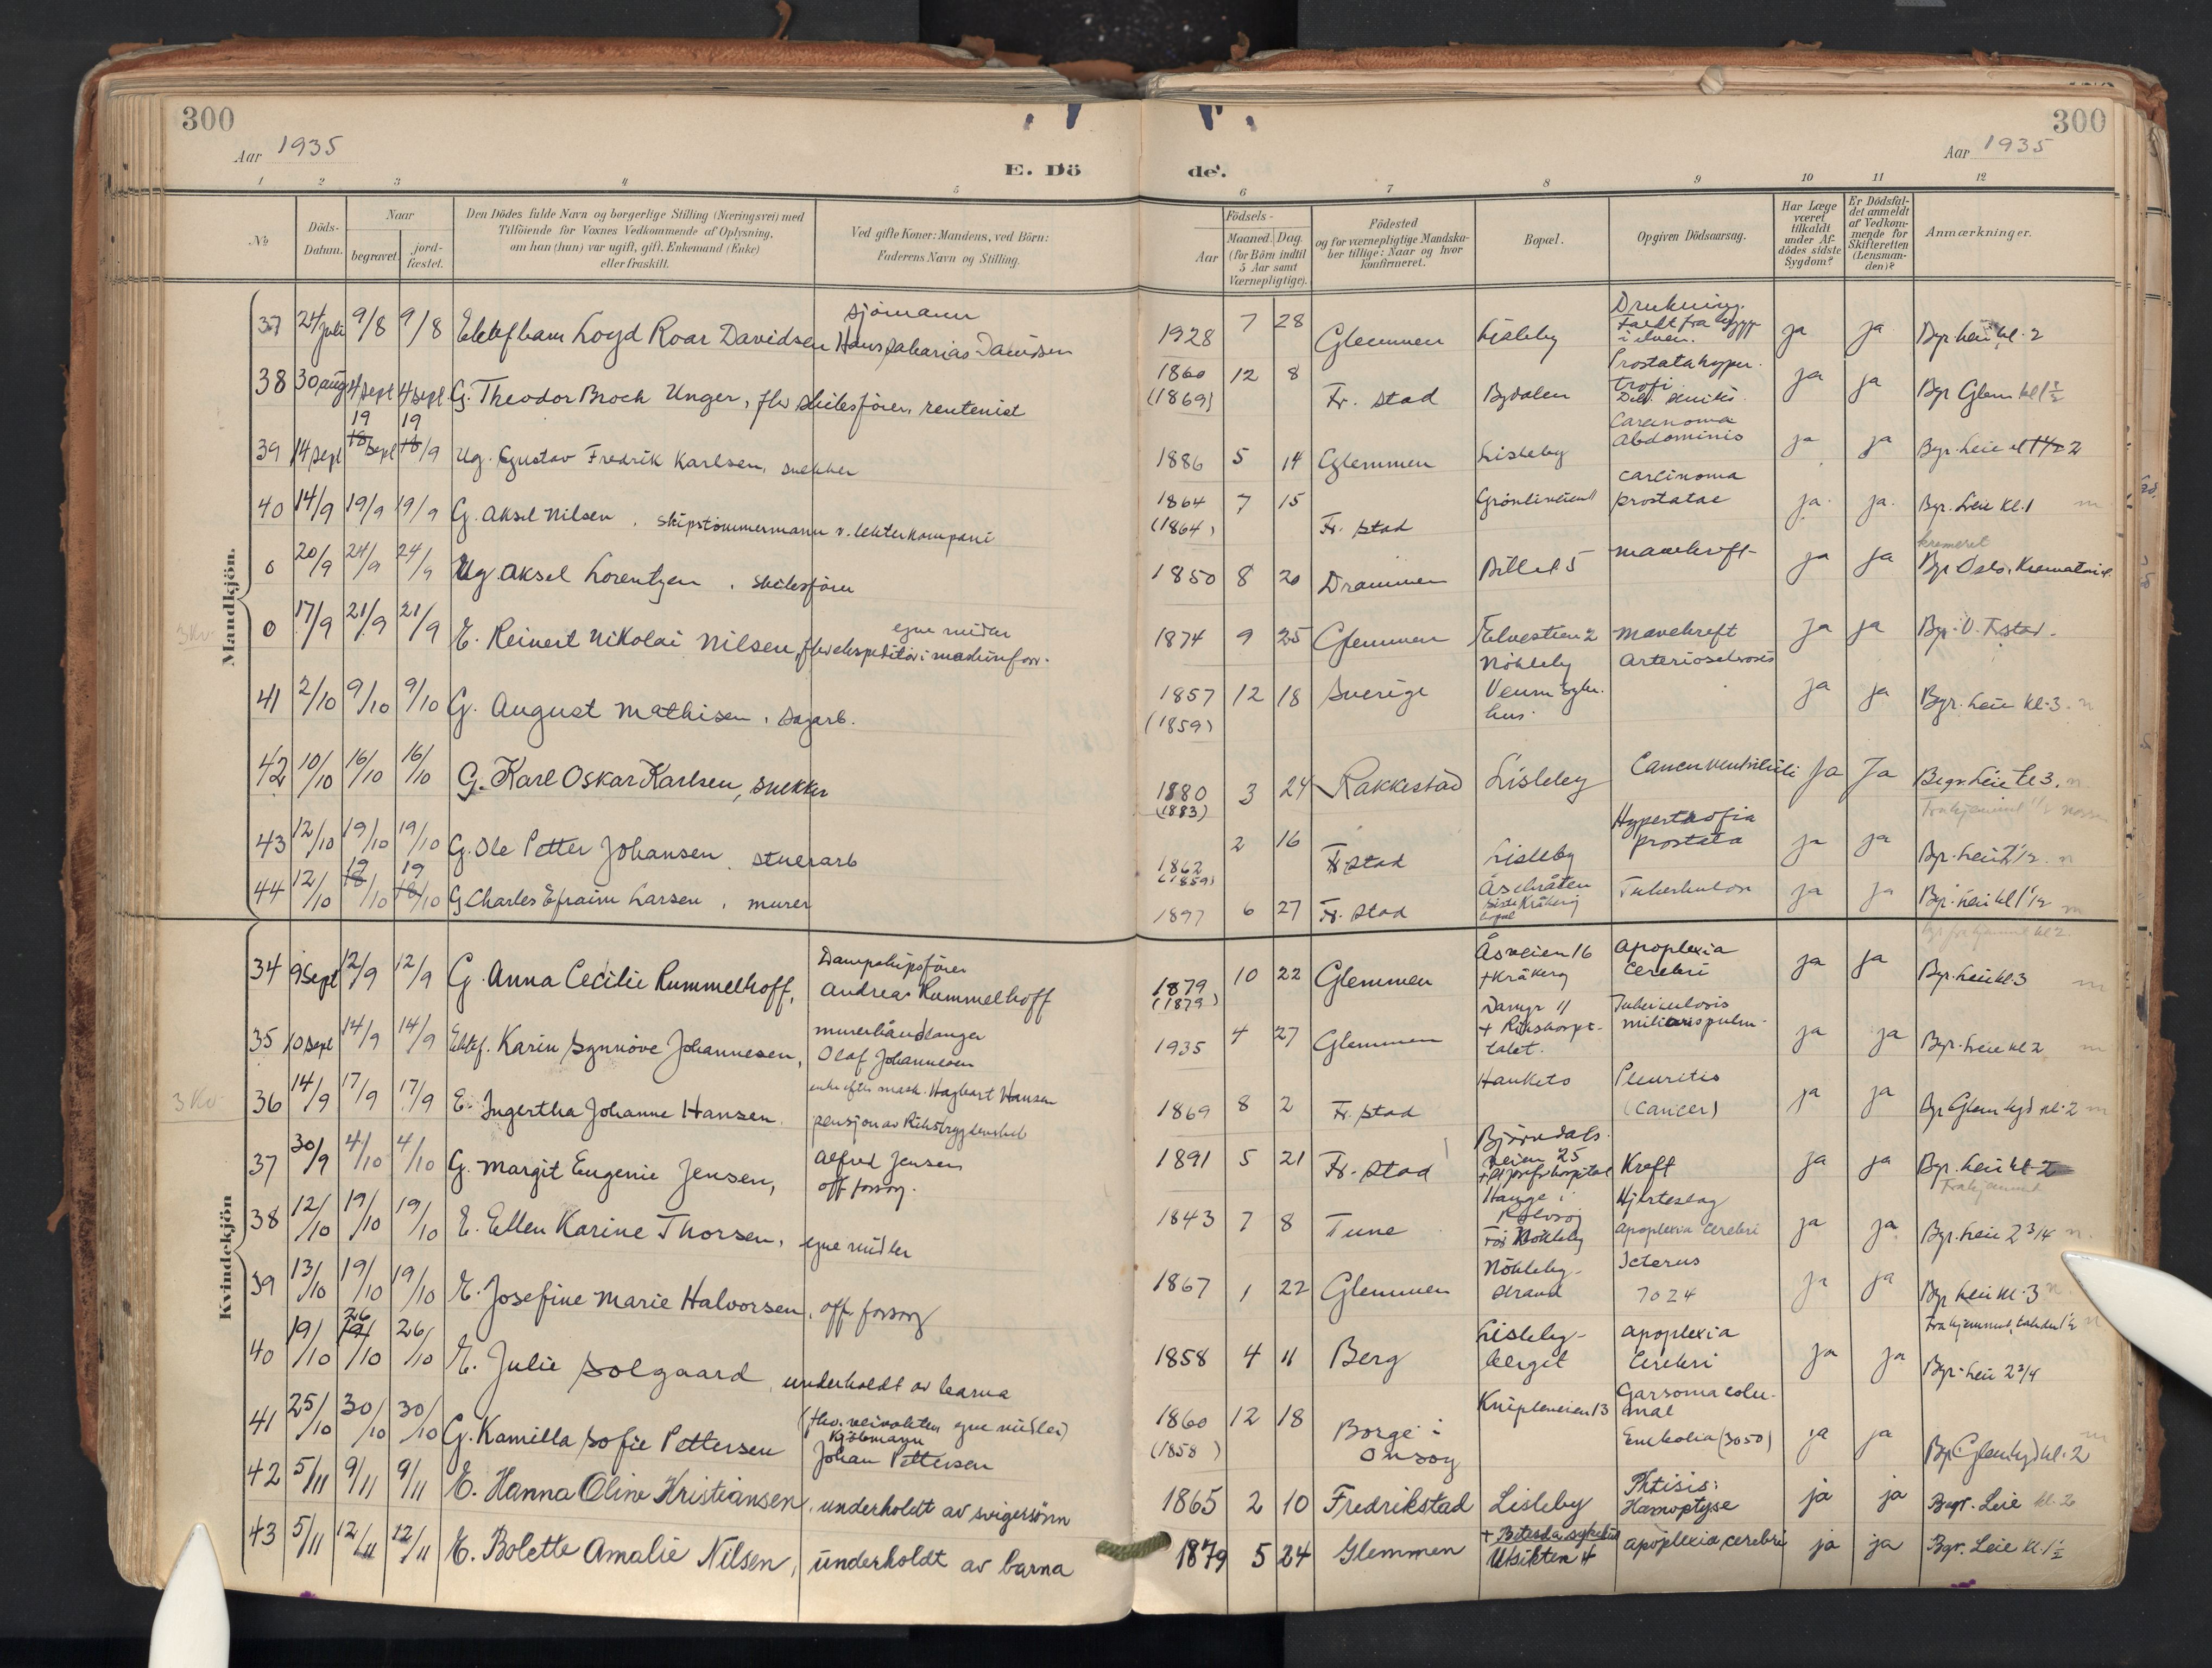 300
300
Aar 1935
E. Dö
de.
Aar 1935
1 2 3 4 5 6 7 8 9 10 11 12
№
Döds-
Datum.
Naar
begravet.
jord-
fæstet.
Den Dödes fulde Navn og borgerlige Stilling (Næringsvei) med
Tilföiende for Voxnes Vedkommende af Oplysning,
om han (hun) var ugift, gift, Enkemand (Enke)
eller fraskilt.
Ved gifte Koner: Mandens, ved Börn:
Faderens Navn og Stilling.
Födsels-
Aar
Maaned. Dag.
(for Börn indtil
5 Aar samt
Værnepligtige).
Födested
og for værnepligtige Mandska-
ber tillige: Naar og hvor
konfirmeret.
Bopæl.
Opgiven Dödsaarsag.
Har Læge
været
tilkaldt
under Af-
dödes sidste
Sygdom?
Er Dödsfal-
det anmeldt
af Vedkom-
mende for
Skifteretten
(Lensman-
den)?
Anmærkninger.
Mandkjön.
37 24 juli 9/8 9/8 Ektef barn Loyd Roar Davidsen sjömann Hans Zakarias Davidsen 1928 7 28 Glemmen Lisleby Drukning. Faldt fra brygge i elven. ja ja Bgr. Leie kl. 2
38 30 aug 4 sept 4 sept. G. Theodor Broch Unger, fhv skibsförer, rentenist 1860 (1869) 12 8 Fr. stad Bydalen Prostatahyper-trofi ja ja Bgr Glem kl 1 1/2
39 14 sept 19 sept 19/9 Ug. Gustav Fredrik Karlsen, snekker 1886 5 14 Glemmen Lisleby Carcinoma Abdominis ja ja Bgr. Leie kl 2
40 14/9 19/9 19/9 G. Aksel Nilsen, skipstömmermann v. lekterkompani 1864 (1864) 7 15 Fr. stad Grönliveien carcinoma prostatae ja ja Bgr. Leie kl. 1
0 20/9 24/9 24/9 Ug Aksel Lorentzen, skibsförer 1850 8 20 Drammen mavekreft ja ja kremeret Bgr. Oslo Krematori
0 17/9 21/9 21/9 E. Reinert Nikolai Nilsen, fhv ekspeditör i maskinforr. egne midler 1874 9 25 Glemmen mavekreft ja ja Bgr. Ö. F.stad.
41 2/10 9/10 9/10 G. August Mathisen, sagarb. 1857 (1859) 12 18 Sverige Nökleby Veum syke-hus Arteriosclerosis ja ja Bgr. Leie kl. 3.
42 10/10 16/10 16/10 G. Karl Oskar Karlsen, snekker 1880 (1883) 3 24 Rakkestad Lisleby Cancer ventriculi Ja Ja Begr. Leie kl 3.
43 12/10 19/10 19/10 G. Ole Petter Johansen, stuerarb 1862 (1859) 2 16 Fr. stad Lisleby Hypertrofia prostata ja ja Bgr. Leie 2 1/2
44 12/10 19/10 19/10 G Charles Efraim Larsen, murer 1897 6 27 Fr. stad Tuberkulose ja ja Bgr. Leie kl 1 1/2
Kvindekjön
34 9 Sept 12/9 12/9 G. Anna Cecilie Rummelhoff, Dampskipsförer Andreas Rummelhoff 1879 (1879) 10 22 Glemmen Åsveien 16 + Kråkeröy Apoplexia Cerebri ja ja Bgr. Leie kl 3
35 10 sept 14/9 14/9 Ektef. Karin Synnöve Johannesen, murerhåndlanger Olaf Johannesen 1935 4 27 Glemmen Damyr 11 + Rikshospi-talet. Tuberculosis miliaris pulm. ja ja Bgr. Leie kl 2
3 Kv. 36 14/9 17/9 17/9 E. Ingertha Johanne Hansen. enke efter mask. Hagbart Hansen pensjon av Rikstrygdeverket 1869 8 2 Fr. stad Hankets Pleuritis (Cancer) ja ja Bgr Glem kgd kl. 2
37 30/9 4/10 4/10 G. Margit Eugenie Jensen, Alfred Jensen off. forsorg. 1891 5 21 Fr. Stad Björndals-veien 25 Kreft ja ja Bgr. Leie kl. 2
38 12/10 19/10 19/10 E. Ellen Karine Thorsen, egne midler 1843 7 8 Tune Hauge i Rolvsöy Hjerteslag Apoplexia Cerebri ja ja Bgr. Leie 2 3/4
39 13/10 19/10 19/10 E. Josefine Marie Halvorsen, off. forsorg 1867 1 22 Glemmen Nökleby-strand Icterus 7024 ja ja Bgr Leie kl. 3
40 19/10 26/10 26/10 E. Julie Solgaard, underholdt av barna 1858 4 11 Berg Lisleby-berget Apoplexia Cerebri ja ja Bgr. Leie 2 3/4
41 25/10 30/10 30/10 G. Kamilla Sofie Pettersen (fhv. veivokter, egne midler) Kjöbmann Johan Pettersen 1860 (1858) 12 18 Borge i Onsöy Knipleveien 13 Embolia (3050) ja ja Bgr. Glem kgd kl. 2
42 5/11 9/11 9/11 E. Hanna Oline Kristiansen, underholdt av svigersönn 1865 2 10 Fredrikstad Lisleby Phtisis: Hæmoptyse ja ja Begr. Leie kl. 2
43 5/11 12/11 12/11 E. Bolette Amalie Nilsen, underholdt av barna 1879 5 24 Glemmen + Betesda sykehus Utsikten 4 apoplexia cerebri ja ja Bgr. Leie kl. 1 1/2